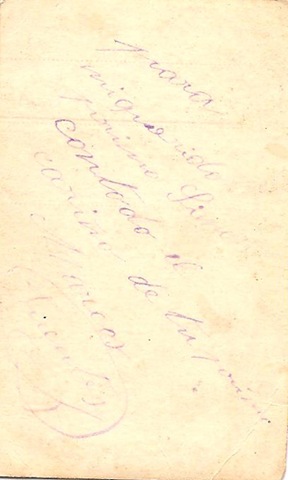 para
mi querido
primo
con todo el
cariño de tu primo
Marcos